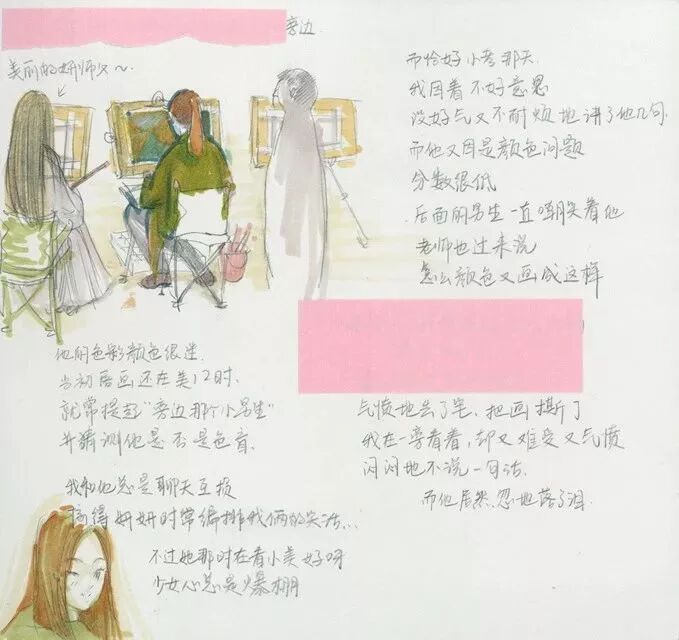 旁边
美丽的妍师父~
他的色彩颜色很迷.
当初后画还在美12时.
就常提起“旁边那个小男生”
并猜测他是否是色盲.
我和他总是聊天互损
搞得妍妍时常编排我俩的笑话...
不过她那时在看小美好呀
少女心总是爆棚
而恰好小考那天
我因着不好意思
没好气又不耐烦地讲了他几句.
而他又因是颜色问题
分数很低
后面的男生一直嘲笑着他
老师也过来说
怎么颜色又画成这样
气愤地丢了笔、把画撕了
我在一旁看着,却又难受又气愤
闷闷地不说一句话.
而他居然.忽地落了泪.